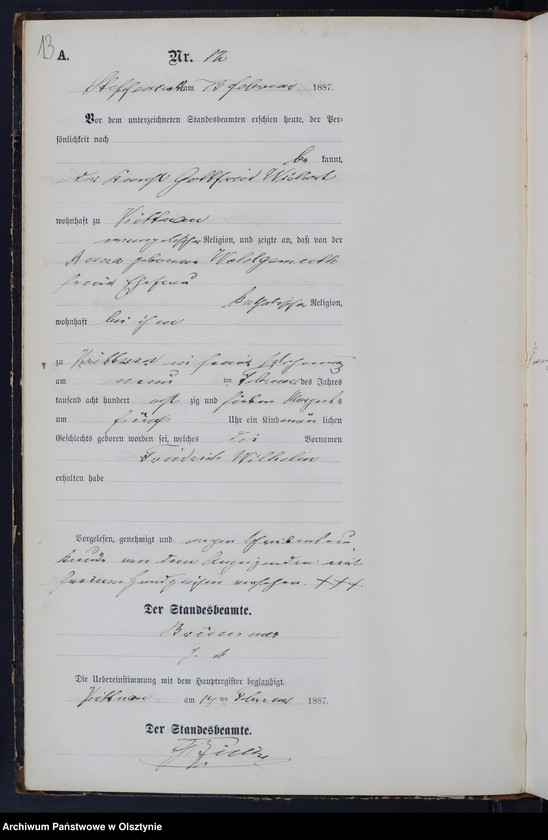 13
A.
Nr. 12
am 13 Februar 1887.
Vor dem unterzeichneten Standesbeamten erschien heute, der Per-
sönlichkeit nach
be kannt,
der Gottfried
wohnhaft zu
evangelischer Religion, und zeigte an, daß von der
Anna geborenen Wohlgemuth
seiner Ehefrau
katholischer Religion,
wohnhaft bei ihm
zu in seiner Wohnung
am neun ten Februar des Jahres
tausend acht hundert acht zig und sieben
um fünf Uhr ein Kind männ lichen
Geschlechts geboren worden sei, welches die Vornamen
Friedrich Wilhelm
erhalten habe
Vorgelesen, genehmigt und wegen Schreibensun
kunde von dem Anzeigenden mit
seinem Handzeichen versehen. +++
Der Standesbeamte.
Die Uebereinstimmung mit dem Hauptregister beglaubigt.
am 14 ten Februar 1887.
Der Standesbeamte.
Archiwum Państwowe w Olsztynie